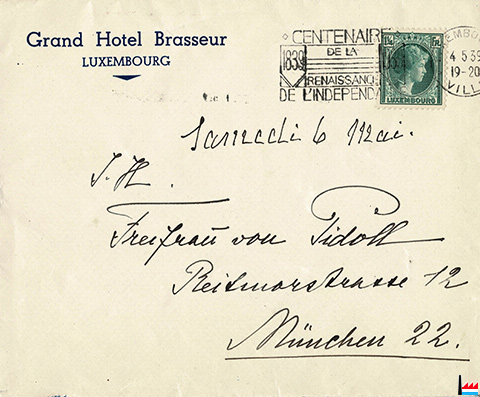 Grand Hotel Brasseur
LUXEMBOURG
CENTENAIRE
DE LA
1839
RENAISSANC
DE L'INDEPENDA
LUXEMBOURG
EMBOU
4 5 39
19-20
VILL
Samedi 6 Mai.
I. H.
Freifrau von Pidoll
Reitmorstrasse 12
München 22.